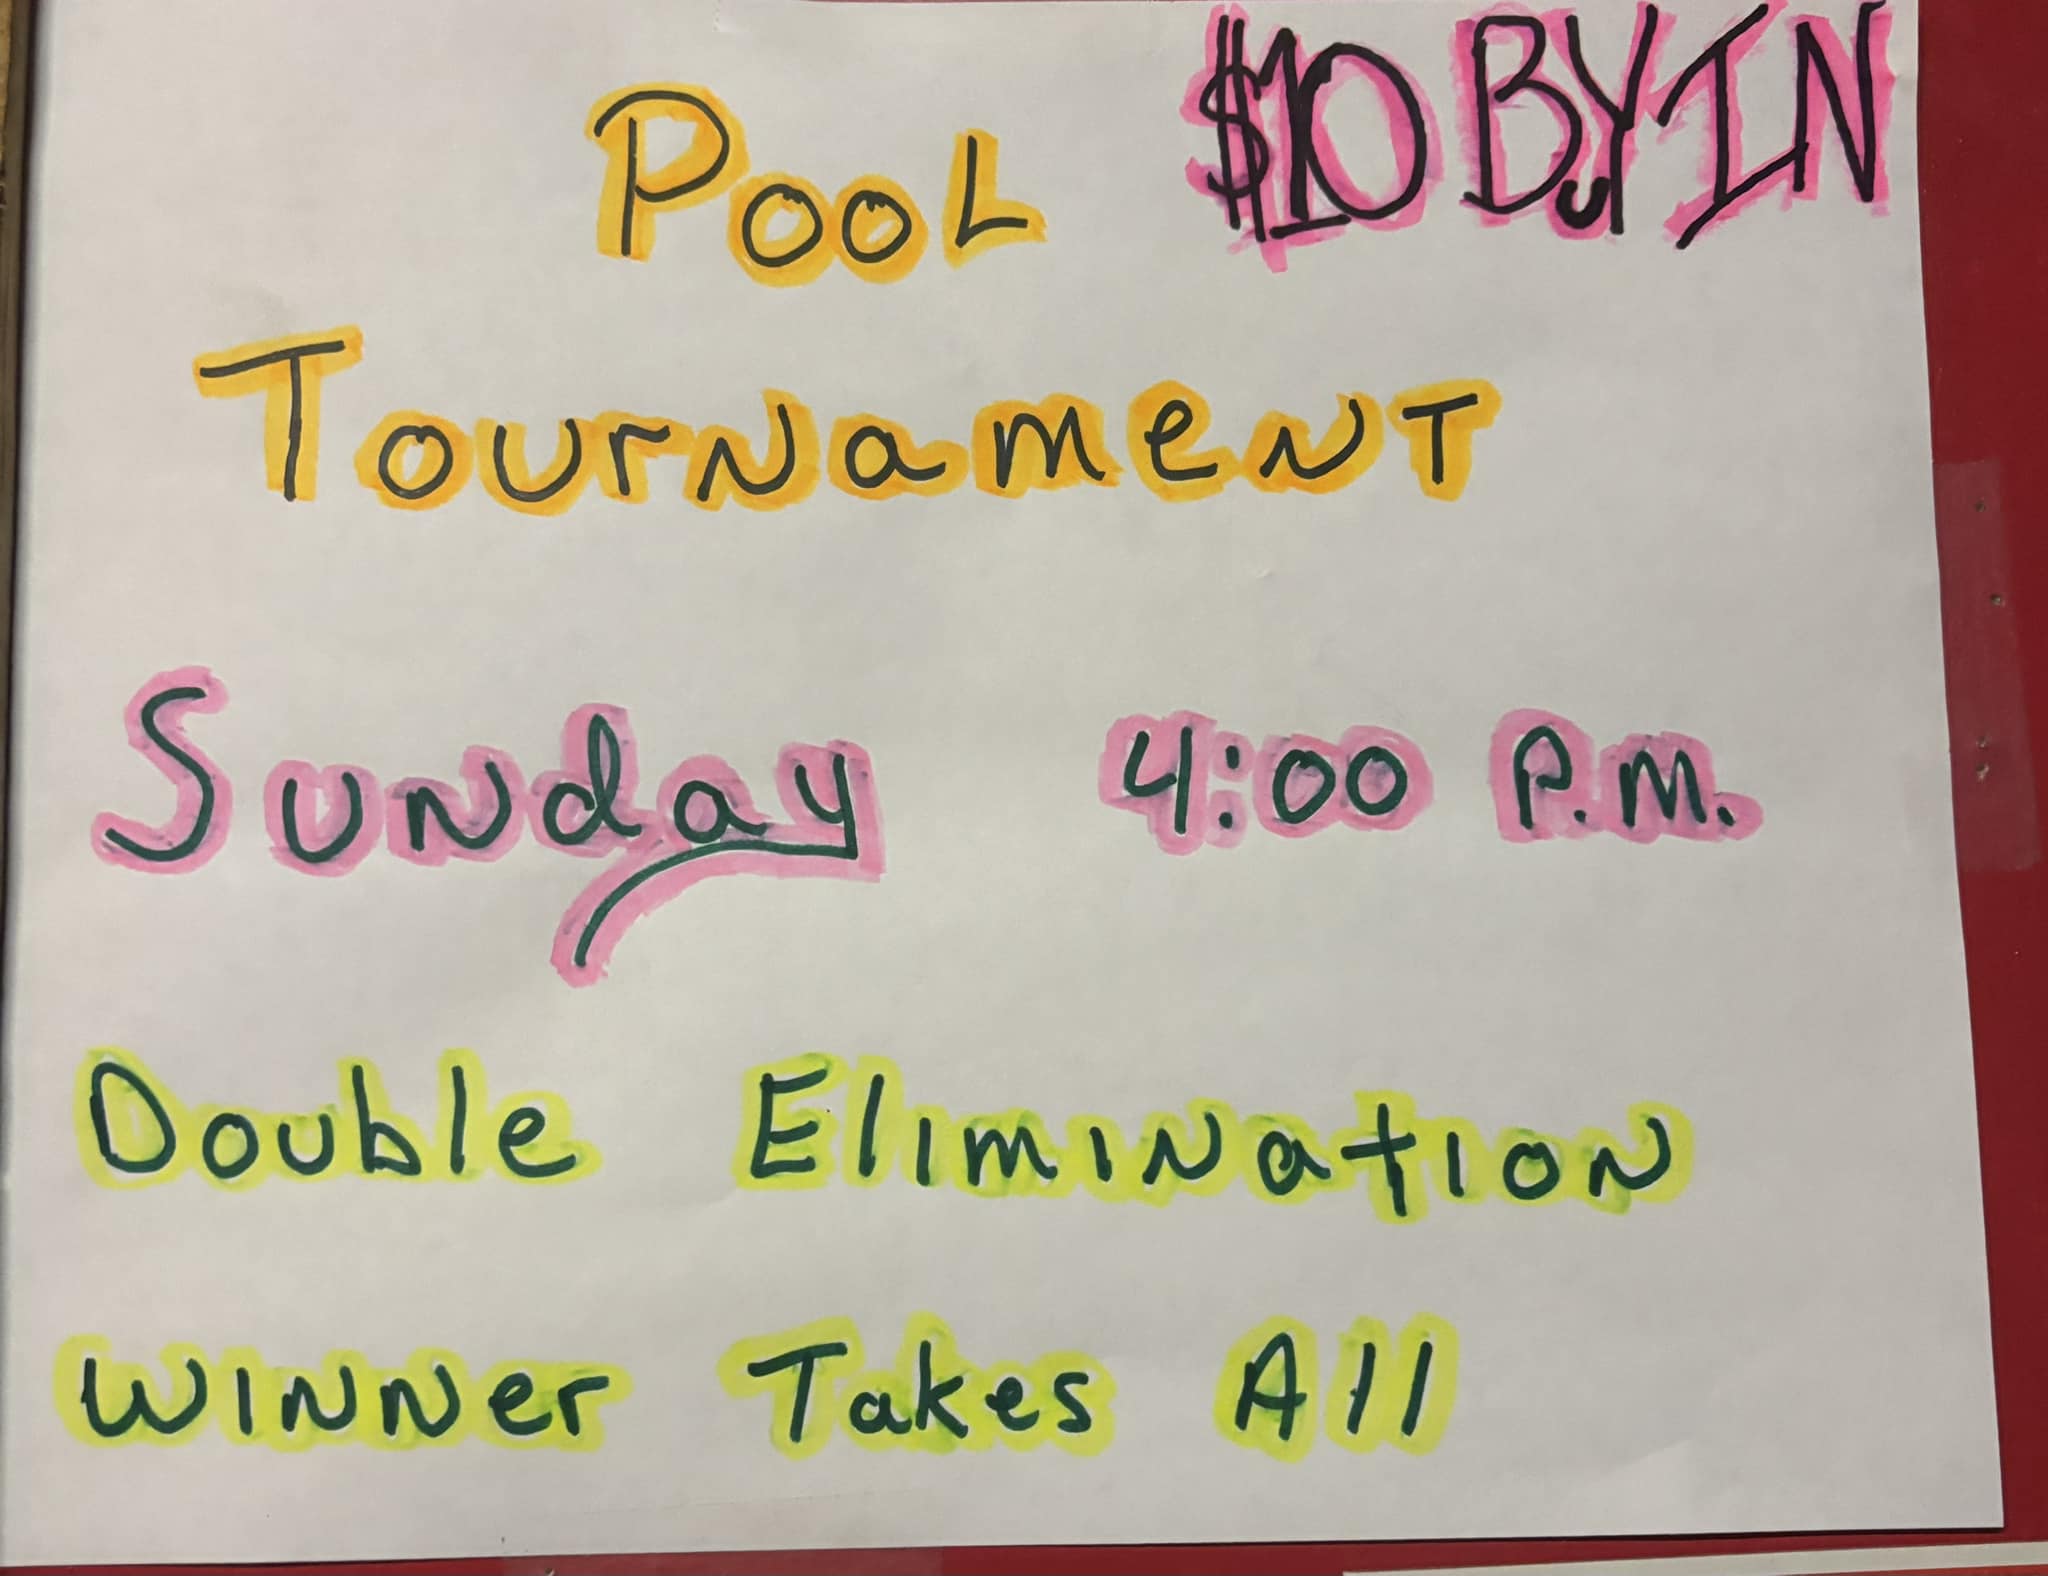 $10 BuY IN
Pool
Tournament
Sunday 4:00 P.M.
Double Elimination
Winner Takes All